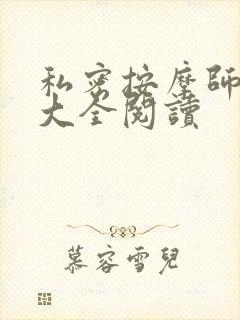 私密按摩師
大全閱讀
慕容雪兒